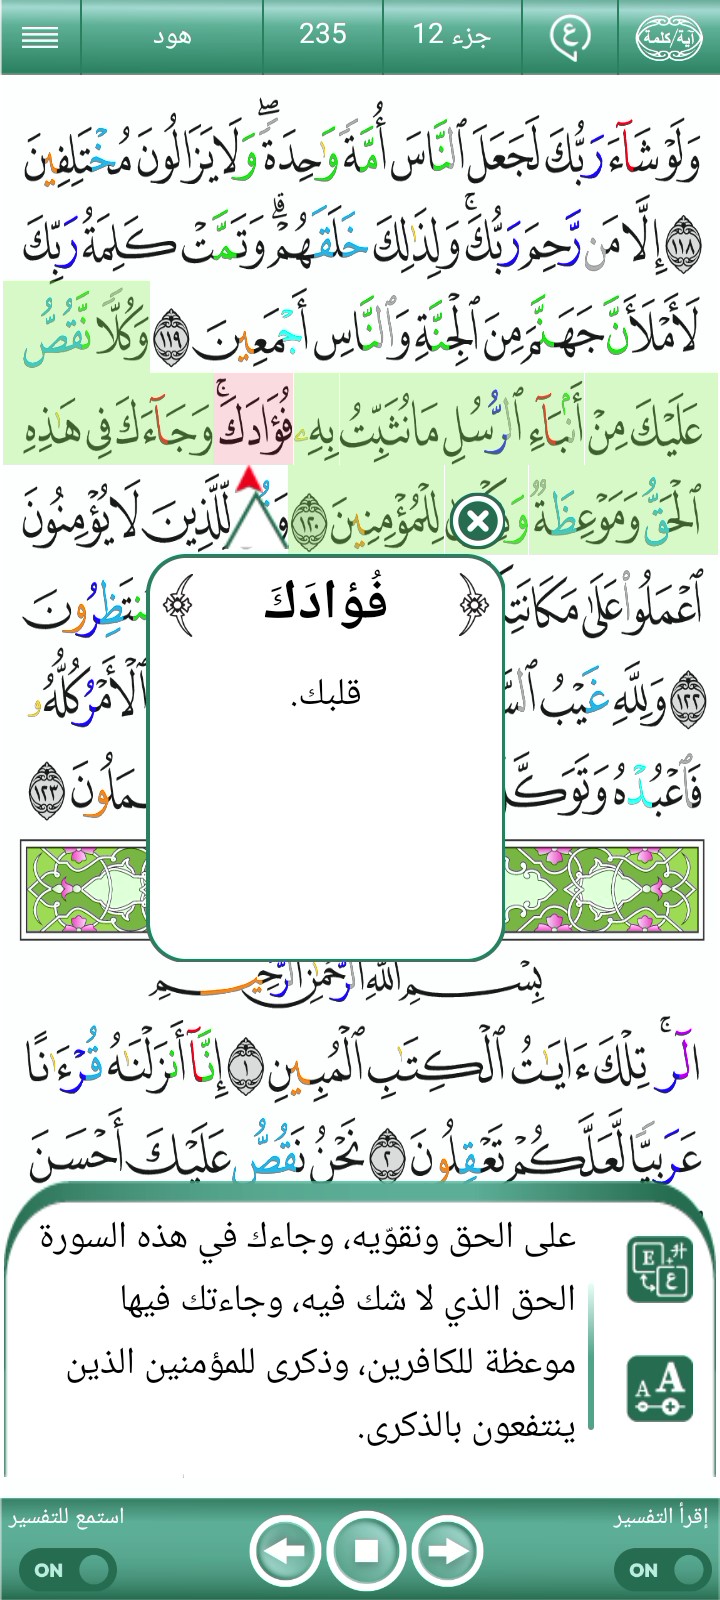 هود
235
جزء 12
ع
آية/كلمة
وَلَوْ شَآءَ رَبُّكَ لَجَعَلَ ٱلنَّاسَ أُمَّةً وَٰحِدَةً ۖ وَلَا يَزَالُونَ مُخْتَلِفِينَ
﴿١١٨﴾ إِلَّا مَن رَّحِمَ رَبُّكَ ۚ وَلِذَٰلِكَ خَلَقَهُمْ ۗ وَتَمَّتْ كَلِمَةُ رَبِّكَ
لَأَمْلَأَنَّ جَهَنَّمَ مِنَ ٱلْجِنَّةِ وَٱلنَّاسِ أَجْمَعِينَ ﴿١١٩﴾ وَكُلًّا نَّقُصُّ
عَلَيْكَ مِنْ أَنۢبَآءِ ٱلرُّسُلِ مَا نُثَبِّتُ بِهِۦ فُؤَادَكَ ۚ وَجَآءَكَ فِى هَٰذِهِ
ٱلْحَقُّ وَمَوْعِظَةٌ لِلْمُؤْمِنِينَ ﴿١٢٠﴾ لِّلَّذِينَ لَا يُؤْمِنُونَ
ٱعْمَلُوا۟ عَلَىٰ
﴿١٢٢﴾ وَلِلَّهِ غَيْبُ ٱلْأَمْرُ كُلُّهُۥ
فَٱعْبُدْهُ ﴿١٢٣﴾
فُؤَادَكَ
قلبك.
بِسْمِ ٱللَّهِ ٱلرَّحْمَٰنِ ٱلرَّحِيمِ
الٓر ۚ تِلْكَ ءَايَٰتُ ٱلْكِتَٰبِ ٱلْمُبِينِ ﴿١﴾ إِنَّآ أَنزَلْنَٰهُ قُرْءَٰنًا
عَرَبِيًّا لَّعَلَّكُمْ تَعْقِلُونَ ﴿٢﴾ نَحْنُ نَقُصُّ عَلَيْكَ أَحْسَنَ
على الحق ونقوّيه، وجاءك في هذه السورة
الحق الذي لا شك فيه، وجاءتك فيها
موعظة للكافرين، وذكرى للمؤمنين الذين
ينتفعون بالذكرى.
إقرأ التفسير
ON
استمع للتفسير
ON